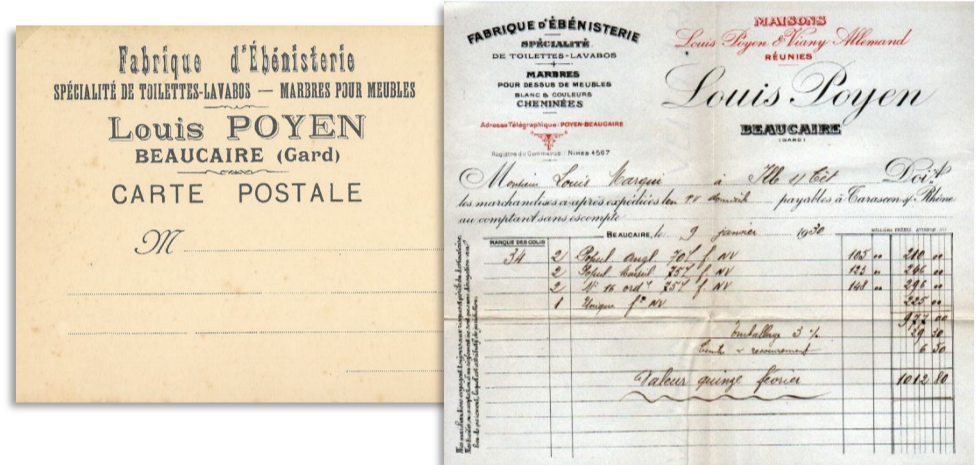 Fabrique d'Ébénisterie
SPÉCIALITÉ DE TOILETTES-LAVABOS — MARBRES POUR MEUBLES
Louis POYEN
BEAUCAIRE (Gard)
CARTE POSTALE
M
FABRIQUE D'ÉBÉNISTERIE
SPÉCIALITÉ
DE TOILETTES-LAVABOS
MARBRES
POUR DESSUS DE MEUBLES
BLANC & COULEURS
CHEMINÉES
Adresse Télégraphique: POYEN-BEAUCAIRE
Registre du Commerce: NIMES 4567
MAISONS
Louis Poyen & Viany Allemand
RÉUNIES
Louis Poyen
BEAUCAIRE
(GARD)
Monsieur Louis à Doit
les marchandises ci-après expédiées payables à Tarascon s/ Rhône
au comptant sans escompte
BEAUCAIRE, le 9 janvier 1930
MARQUE DES COLIS
34 2 angl. NV 105 " 210 "
2 NV 123 "
2 N° 16 NV 148 " 296 "
1 Unique NV 225 "
977 00
Emballage 3 % 29 30
Timbre recouvrement 6 50
Valeur quinze février 1012 80